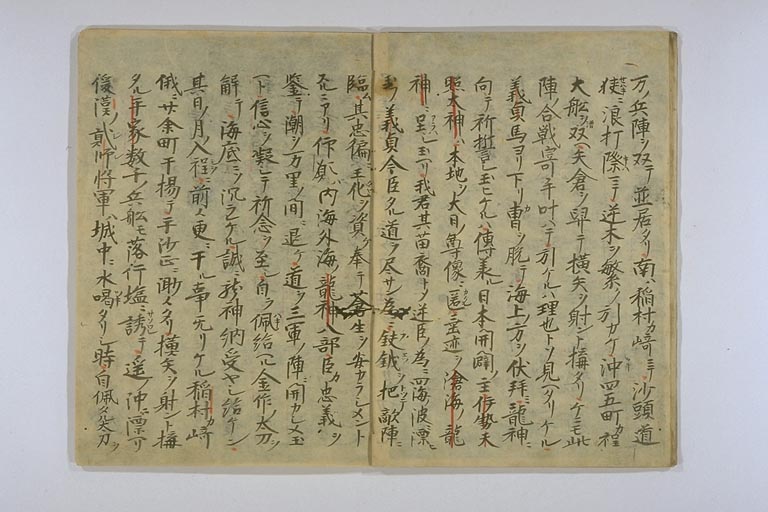 万ノ兵陣ヲ双テ並居タリ南ハ稲村カ崎ニテ沙頭道
狭ニ浪打際マテ逆木ヲ繁ク引カケ沖四五町カ程
大舩ヲ双ヘ矢倉ヲ掻テ横矢ヲ射ント構タリケニモ此
陣ノ合戦寄手叶ハテ引ケルハ理也トソ見ヘタリケル
義貞馬ヨリ下リ曹ヲ脱テ海上ノ方ヲ伏拝ミ龍神ニ
向テ祈誓シ玉ヒケルハ傳奉ル日本開闢ノ主伊勢天
照太神ハ本地ヲ大日ノ尊像ニ匿シ垂迹ヲ滄海ノ龍
神ニ呈シ玉ヘリト我君其苗裔トシテ逆臣ノ為ニ四海波漂ニ
玉フ義貞今臣タル道ヲ尽サン為ニ鈇鉞ヲ把テ敵陣ニ
臨ム其忠偏ニ王化ヲ資ケ奉テ蒼生ヲ安カラシメント
ナルニアリ仰願ハ内海外海ノ龍神八部臣カ忠義ヲ
鑒テ潮ヲ万里ノ間ニ退ケ道ヲ三軍ノ陣ニ開カしメ玉
ヘト信心ヲ凝シテ祈念ヲ至シ自ラ佩給ヘル金作ノ太刀ヲ
解テ海底ニソ沉ラケル誠ニ龍神納受ヤし給ケン
其日ノ月ノ入程ニ前々更ニ干ル事无リケル稲村カ崎
俄ニ廿余町干揚テ平沙正ニ眇々タリ横矢ヲ射ント構
タル平家数千ノ兵舩モ落行塩ニ誘レテ遥ノ沖ニ漂ヘリ
後漢ノ貳師将軍ハ城中ニ水喝タリし時自佩タル太刀ヲ